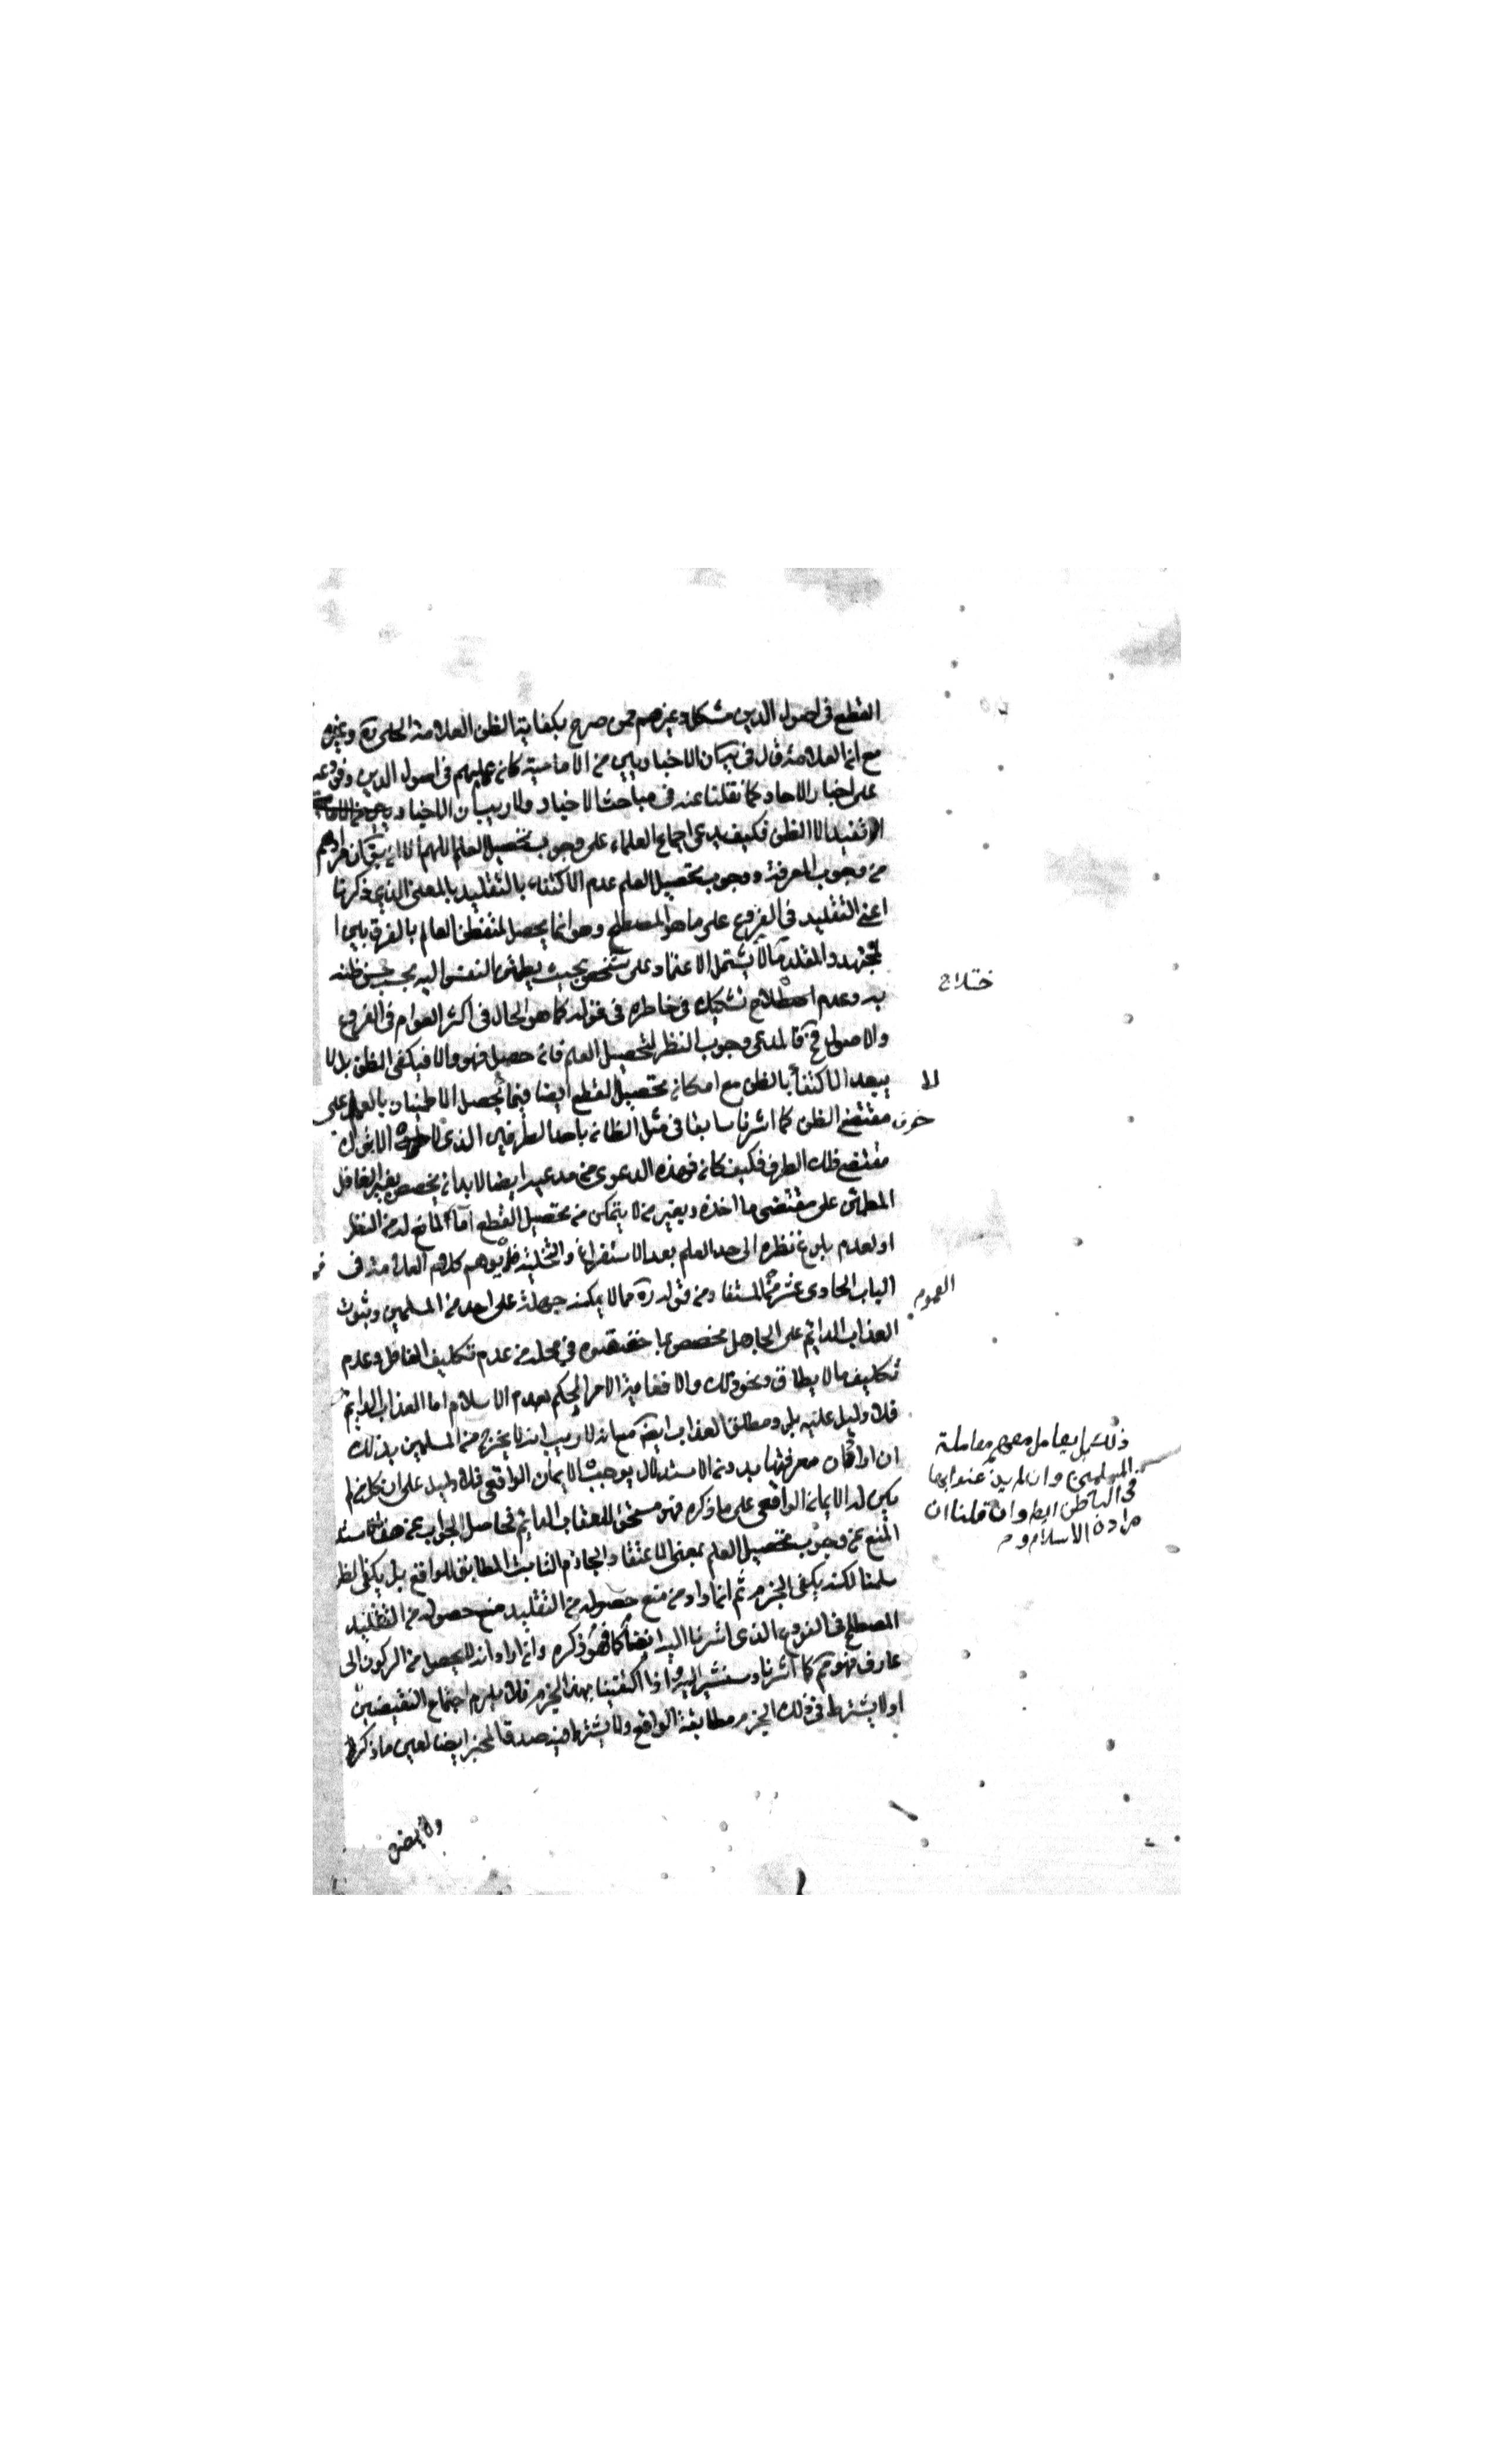 القطع فى اصول الدين مشكل وغيرهم ممن صرح بكفاية الظن العلامة الحلى ره وغيره
مع ان العلامة قال فى بيان الاخباريين من الامامية كان عملهم فى اصول الدين وفروعه
على اخبار الاحاد كما نقلنا عنه فى مباحث الاخبار ولا ريب ان الاخبار
لا تفيد الا الظن فكيف يدعى اجماع العلماء على وجوب تحصيل العلم اللهم الا ان يق كان مرادهم
من وجوب المعرفة ووجوب تحصيل العلم عدم الاكتفاء بالتقليد بالمعنى الذى ذكرنا
اعنى التقليد فى الفروع على ما هو المصطلح وهو انما يحصل للمتفطن العالم بالفرق بين ا
لمجتهد والمقلد لا يشتمل الاعتماد على شخص بحيث يطمئن النفس اليه بحسب حسن ظنه
به وعدم اختلاج تشكيك فى خاطره فى قوله كما هو الحال فى اكثر العوام فى الفروع
والاصول فح فالمدعى وجوب النظر لتحصيل العلم فان حصل فهو والا فيكفى الظن بل لا
يبعد الاكتفاء بالظن مع امكان تحصيل القطع ايضا فيما يحصل الاطمينان بالعمل على
مقتضى الظن كما اشرنا سابقا فى مثل الظان باحد الطرفين الذى لا خوف الا بترك
مقتضى ذلك الطرف فكيف كان فهذه الدعوى من مدعيه ايضا لا بد ان يخصص بغير الغافل
المطمئن على مقتضى ما اخذه وبغير من لا يتمكن من تحصيل القطع اما لمانع له من النظر
او لعدم بلوغ نظره الى حد العلم بعد الاستفراغ والتخلية فما يوهم كلام العلامة فى
الباب الحادى عشر من العموم المستفاد من قوله ره مما لا يمكن جهله على احد من المسلمين وثبوت
العذاب الدائم على الجاهل مخصص بما حققوه فى محله من عدم تكليف الغافل وعدم
تكليف ما لا يطاق ونحو ذلك والا فغاية الامر الحكم بعدم الاسلام اما العذاب الدائم
فلا دليل عليه بل ومطلق العذاب ايضا مع انه لا ريب انه لا يخرج من المسلمين بذلك
ان اراد ان معرفتها بدون الاستدلال يوجب الايمان الواقعى فلا دليل على ان كل من لم
يكن له الايمان الواقعى على ما ذكره فهو مستحق للعقاب الدائم فحاصل الجواب عن هذا
المنع عن وجوب تحصيل العلم بمعنى الاعتقاد الجازم الثابت المطابق للواقع بل يكفى الظن
سلمنا لكنه يكفى الجزم ثم ان اراد من منع حصوله من التقليد منع حصوله من التقليد
المصطلح فى الفروع الذى اشرنا اليه ايضا كما ذكره وان اراد انه لا يحصل من الركون الى
عارف فهو مم كما اشرنا وسنشير اليه واذا اكتفينا بهذا الجزم فلا يلزم اجتماع النقيضين
اولا يشترط فى ذلك الجزم مطابقة الواقع ولا يشترط فيه صدق المخبر ايضا لعين ما ذكرنا
ولا يضر
ختلاج
لا
خوف
العموم
ذلك بل يعامل معهم معاملة
المسلمين وان لم يكن عنوانها
فى الباطن ايضا وان قلنا ان
مراده الاسلام